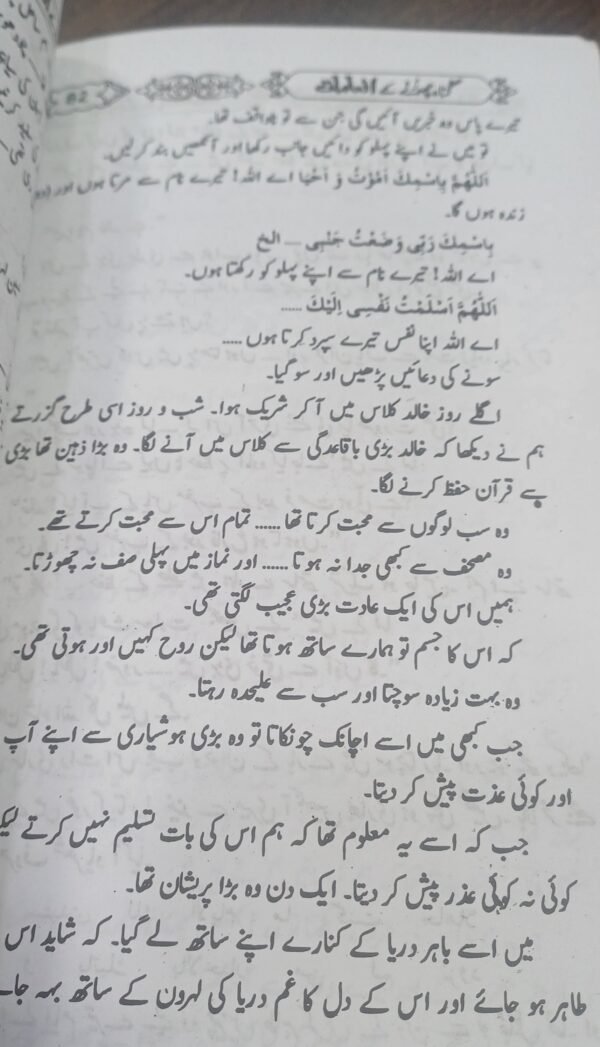 82
گناہ چھوڑنے کے انعامات
تیرے پاس وہ خبریں آئیں گی جن سے تو ناواقف تھا۔
تو میں نے اپنے پہلو کو دائیں جانب رکھا اور آنکھیں بند کر لیں۔
اَللّٰهُمَّ بِاسْمِكَ اَمُوْتُ وَ اَحْيَا اے اللہ! تیرے نام سے مرتا ہوں اور
زندہ ہوں گا۔
بِاسْمِكَ رَبِّى وَضَعْتُ جَنْبِى ... الخ
اے اللہ! تیرے نام سے اپنے پہلو کو رکھتا ہوں۔
اَللّٰهُمَّ اَسْلَمْتُ نَفْسِى اِلَيْكَ ......
اے اللہ اپنا نفس تیرے سپرد کرتا ہوں ......
سونے کی دعائیں پڑھیں اور سو گیا۔
اگلے روز خالد کلاس میں آ کر شریک ہوا۔ شب و روز اسی طرح گزرتے
ہم نے دیکھا کہ خالد بڑی باقاعدگی سے کلاس میں آنے لگا۔ وہ بڑا ذہین تھا بڑی
سے قرآن حفظ کرنے لگا۔
وہ سب لوگوں سے محبت کرتا تھا ...... تمام اس سے محبت کرتے تھے۔
وہ مصحف سے کبھی جدا نہ ہوتا ...... اور نماز میں پہلی صف نہ چھوڑتا۔
ہمیں اس کی ایک عادت بڑی عجیب لگتی تھی۔
کہ اس کا جسم تو ہمارے ساتھ ہوتا تھا لیکن روح کہیں اور ہوتی تھی۔
وہ بہت زیادہ سوچتا اور سب سے علیحدہ رہتا۔
جب کبھی میں اسے اچانک چونکاتا تو وہ بڑی ہوشیاری سے اپنے آپ
اور کوئی عذت پیش کر دیتا۔
جب کہ اسے یہ معلوم تھا کہ ہم اس کی بات تسلیم نہیں کرتے
کوئی نہ کوئی عذر پیش کر دیتا۔ ایک دن وہ بڑا پریشان تھا۔
میں اسے باہر دریا کے کنارے اپنے ساتھ لے گیا۔ کہ شاید اس
طاہر ہو جائے اور اس کے دل کا غم دریا کی لہرون کے ساتھ بہہ